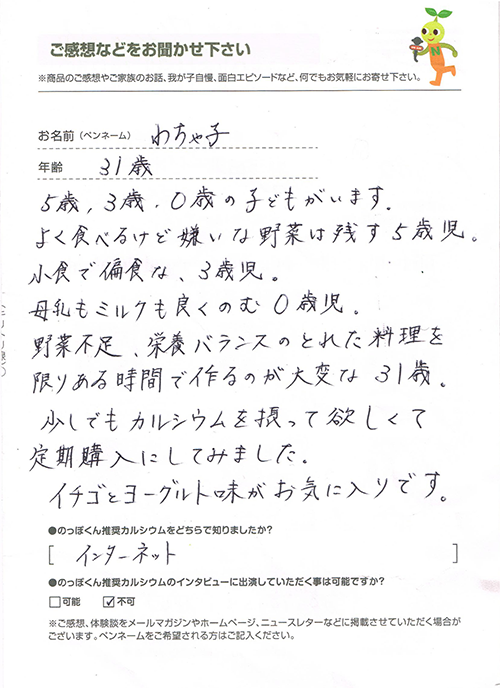 ご感想などをお聞かせ下さい
※商品のご感想やご家族のお話、我が子自慢、面白エピソードなど、何でもお気軽にお寄せ下さい。
N
お名前（ペンネーム） わちゃ子
年齢 31歳
5歳，3歳．0歳の子どもがいます．
よく食べるけど嫌いな野菜は残す5歳児。
小食で偏食な、3歳児。
母乳もミルクも良くのむ0歳児。
野菜不足、栄養バランスのとれた料理を
限りある時間で作るのが大変な31歳。
少しでもカルシウムを摂って欲しくて
定期購入にしてみました．
イチゴとヨーグルト味がお気に入りです。
●のっぽくん推奨カルシウムをどちらで知りましたか？
[ インターネット ]
●のっぽくん推奨カルシウムのインタビューに出演していただく事は可能ですか？
□可能 ☑不可
※ご感想、体験談をメールマガジンやホームページ、ニュースレターなどに掲載させていただく場合が
ございます。ペンネームをご希望される方はご記入ください。